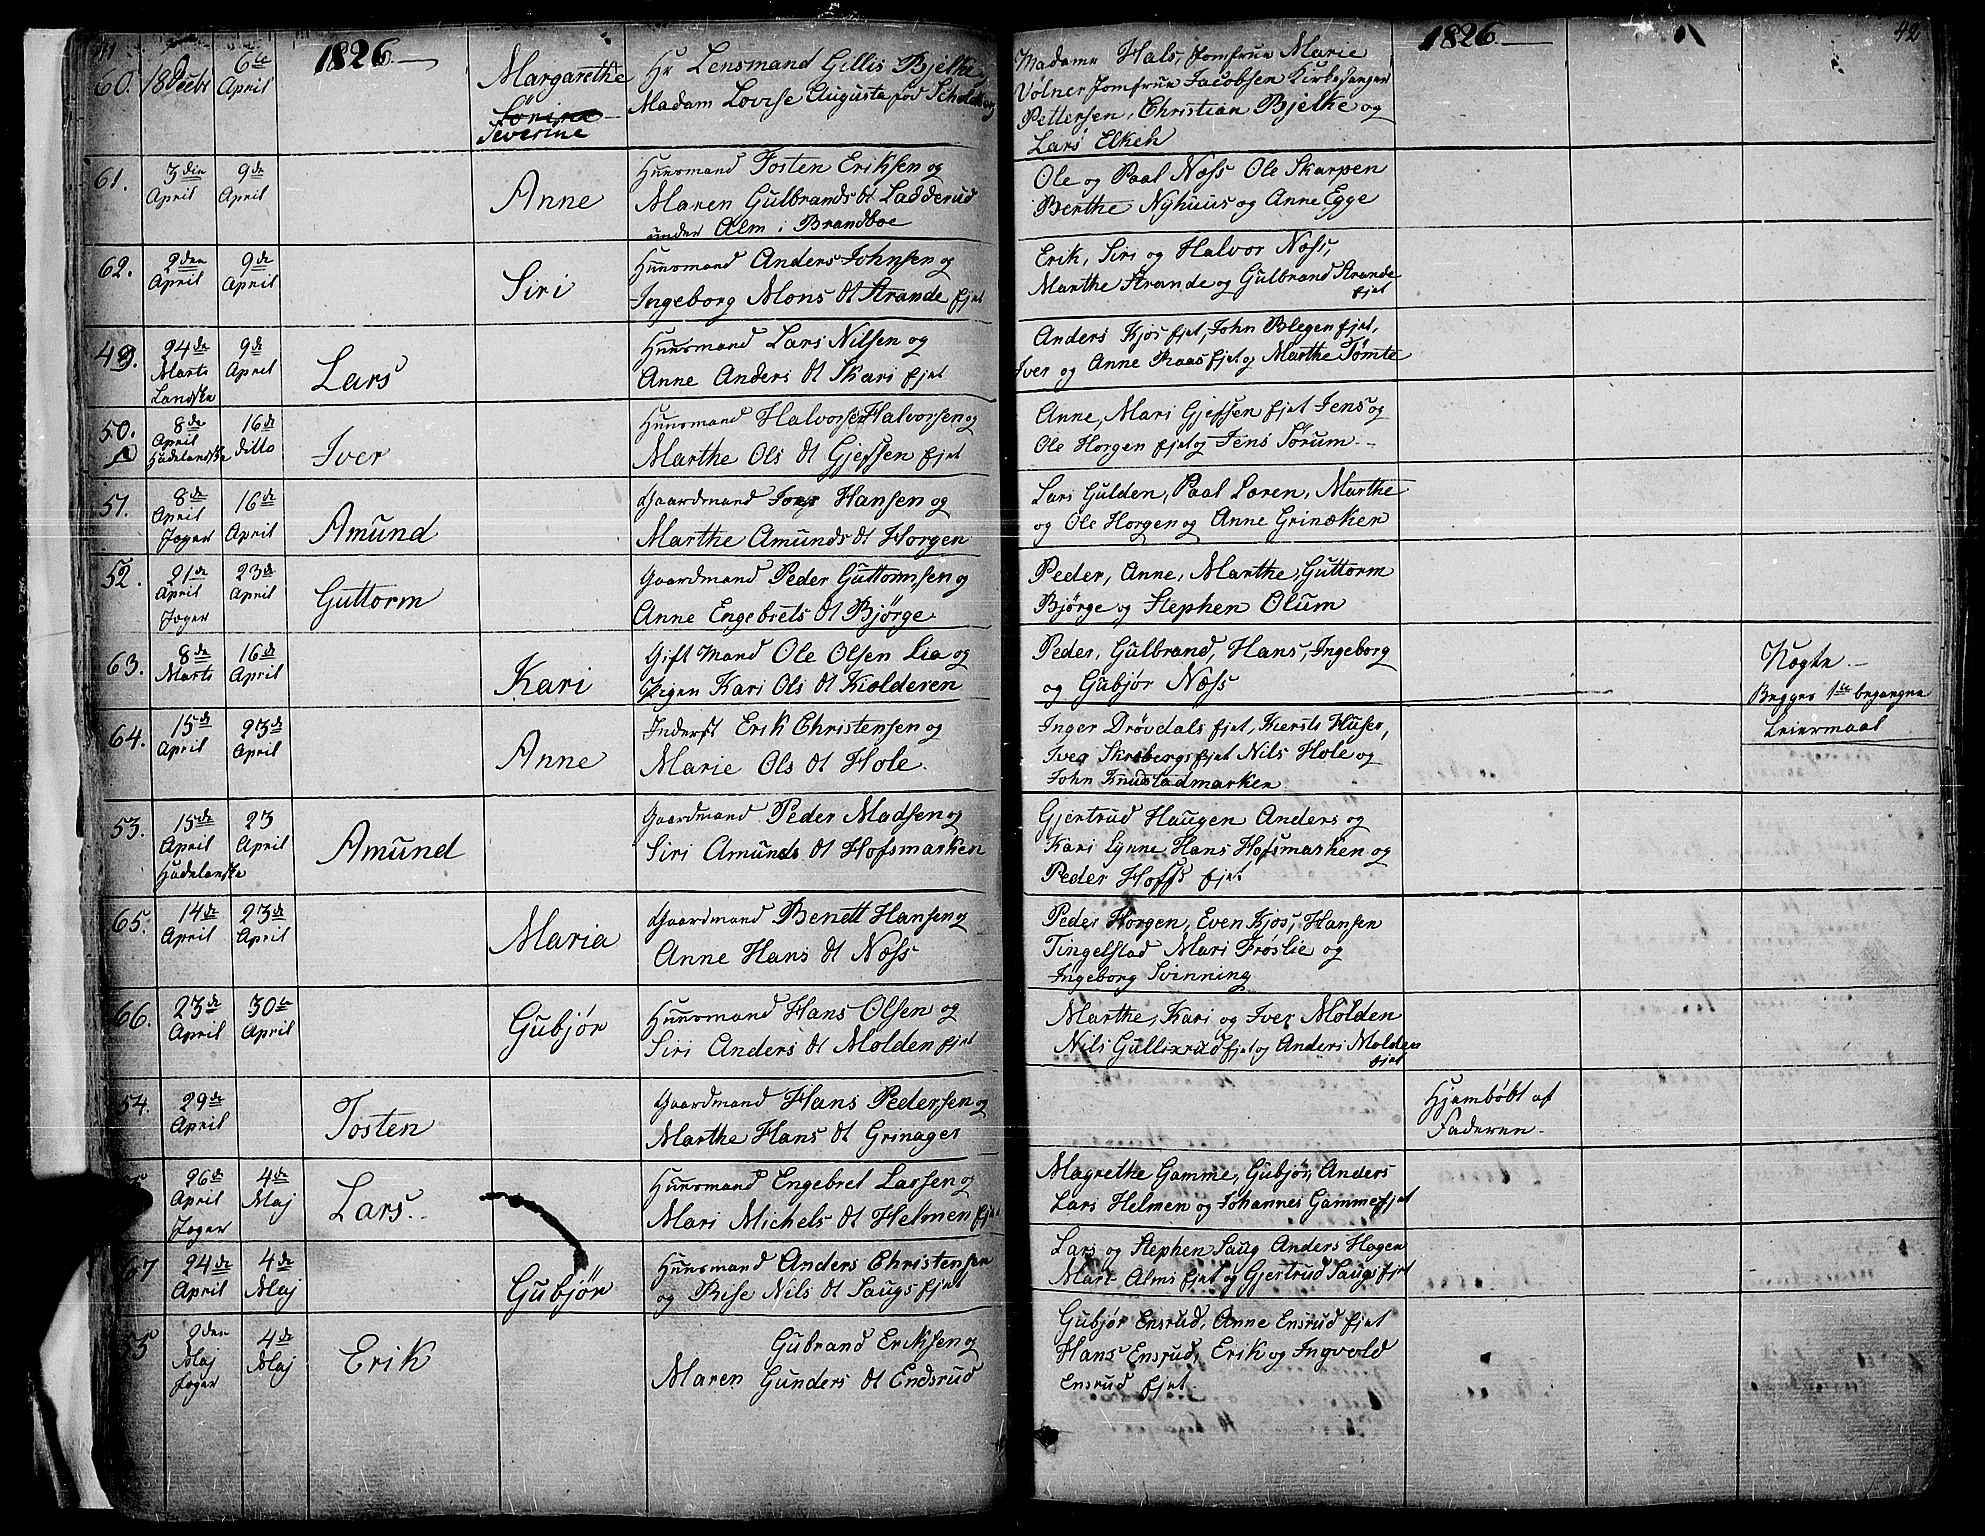 41
1826
1826
42
60. 18 Feebr 6te April
Margarethe
Severine
Hr Lensmand Gillis Bjelke
Madam Lovise Augusta fød
Madame Hals, Jomfrue Marie
Vølner Jomfrue Jacobsen Kirkesanger
Pettersen, Christian Bjelke og
Lars Elken
61. 3die April 9de April
Anne
Huusmand Tosten Eriksen og
Maren Gulbrands dt Ladderud
under Alm i Brandboe
Ole og Paal Næss Ole Skarpen
Berthe Nyhuus og Anne Egge
62. 2den April 9de April
Siri
Huusmand Anders Johnsen og
Ingeborg Mons dt Strande ejet
Erik, Siri og Halvor Næss,
Marthe Strande og Gulbrand Strande
ejet
49. 24de Marts Landske 9de April
Lars
Huusmand Lars Nilsen og
Anne Anders dt Skari ejet
Anders Kjos ejet, John Blegen ejet,
Iver og Anne Raas ejet og Marthe Tømte
50. 8de April Hadelandske 16de ditto
Iver
Huusmand Halvorsen Halvorsen og
Marthe Ols dt Gjefsen ejet
Anne, Mari Gjefsen ejet Jens og
Ole Horgen ejet og Jens Sørum
51. 8de April Joger 16de April
Amund
Gaardmand Hansen og
Marthe Amunds dt Horgen
Lars Gulden, Paal Loren, Marthe
og Ole Horgen og Anne Grinaker
52. 21de April Joger 23de April
Guttorm
Gaardmand Peder Guttormsen og
Anne Engebrets dt Bjørge
Peder, Anne, Marthe, Guttorm
Bjørge og Stephen Olum
63. 8de Marts 16de April
Kari
Gift Mand Ole Olsen Lia og
Pigen Kari Ols dt Kolderen
Peder, Gulbrand, Hans, Ingeborg
og Gubjør Næss
Begges 1ste begangne
Leiermaal
64. 15de April 23de April
Anne
Inderst Erik Christensen og
Marie Ols dt Hole.
Inger Drøvdals ejet, Kersti Huser,
Iver Skrebergs ejet Nils Hole og
John Knudstadmarken
53. 15de April Hadelandske 23 April
Amund
Gaardmand Peder Madsen og
Siri Amunds dt Hofsmarken
Gjertrud Haugen Anders og
Kari Lynne, Hans Hofsmarken og
Peder Hoffs ejet
65. 14de April 23de April
Maria
Gaardmand Benett Hansen og
Anne Hans dt Næss
Peder Horgen, Even Kjos, Hansen
Tingelstad Mari Froslie og
Ingeborg Svenning
66. 23de April 30te April
Gubjør
Huusmand Hans Olsen og
Siri Anders dt Molden ejet
Marthe, Kari og Iver Molden
Nils Gullixrud ejet og Anders Molden
ejet
54. 29de April
Tosten
Gaardmand Hans Pedersen og
Marthe Hans dt Grinager
Hjembøbt af
Faderen
26de April Joger 4de Maj
Lars
Huusmand Engebret Larsen og
Mari Michels dt Helmen ejet
Magrethe Gamme, Gubjør, Anders
Lars Helmen og Johannes Gamme ejet
67 24de April 4de Maj
Gubjør
Huusmand Anders Christensen
og Beise Nils dt Saugs ejet
Lars og Stephen Saug Anders Hagen
Mari Alms ejet og Gjertrud Saugs ejet
55 2den Maj Joger 4de Maj
Erik
Gubrand Eriksen og
Maren Gunders dt Endsrud
Gubjør Ensrud, Anne Ensrud ejet
Hans Ensrud, Erik og Ingvold
Ensrud ejet